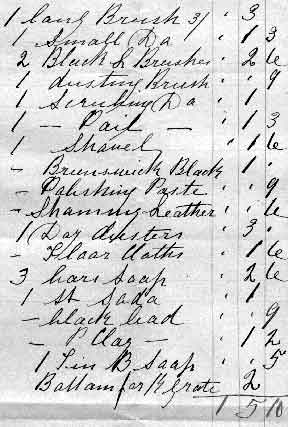 1 long Brush 3/ " 3 "
1 Small Do " 1 3
2 Black L Brushes " 2 6
1 dusting Brush " " 9
1 Scrubing Do " 1 "
1 - Pail - " 1 3
1 Shovel " 1 6
- Brunswick Black " 1 "
- Polishing Paste " " 9
- Shammy Leather " " 6
1 Doz dusters " 3 "
- Floor Cloths " 1 6
3 bars Soap " 2 6
1 St Soda " 1 "
- black lead " " 9
- P Clay - " 1 2
1 Tin B Soap " " 5
Bottom for K grate " 2
1 5 10